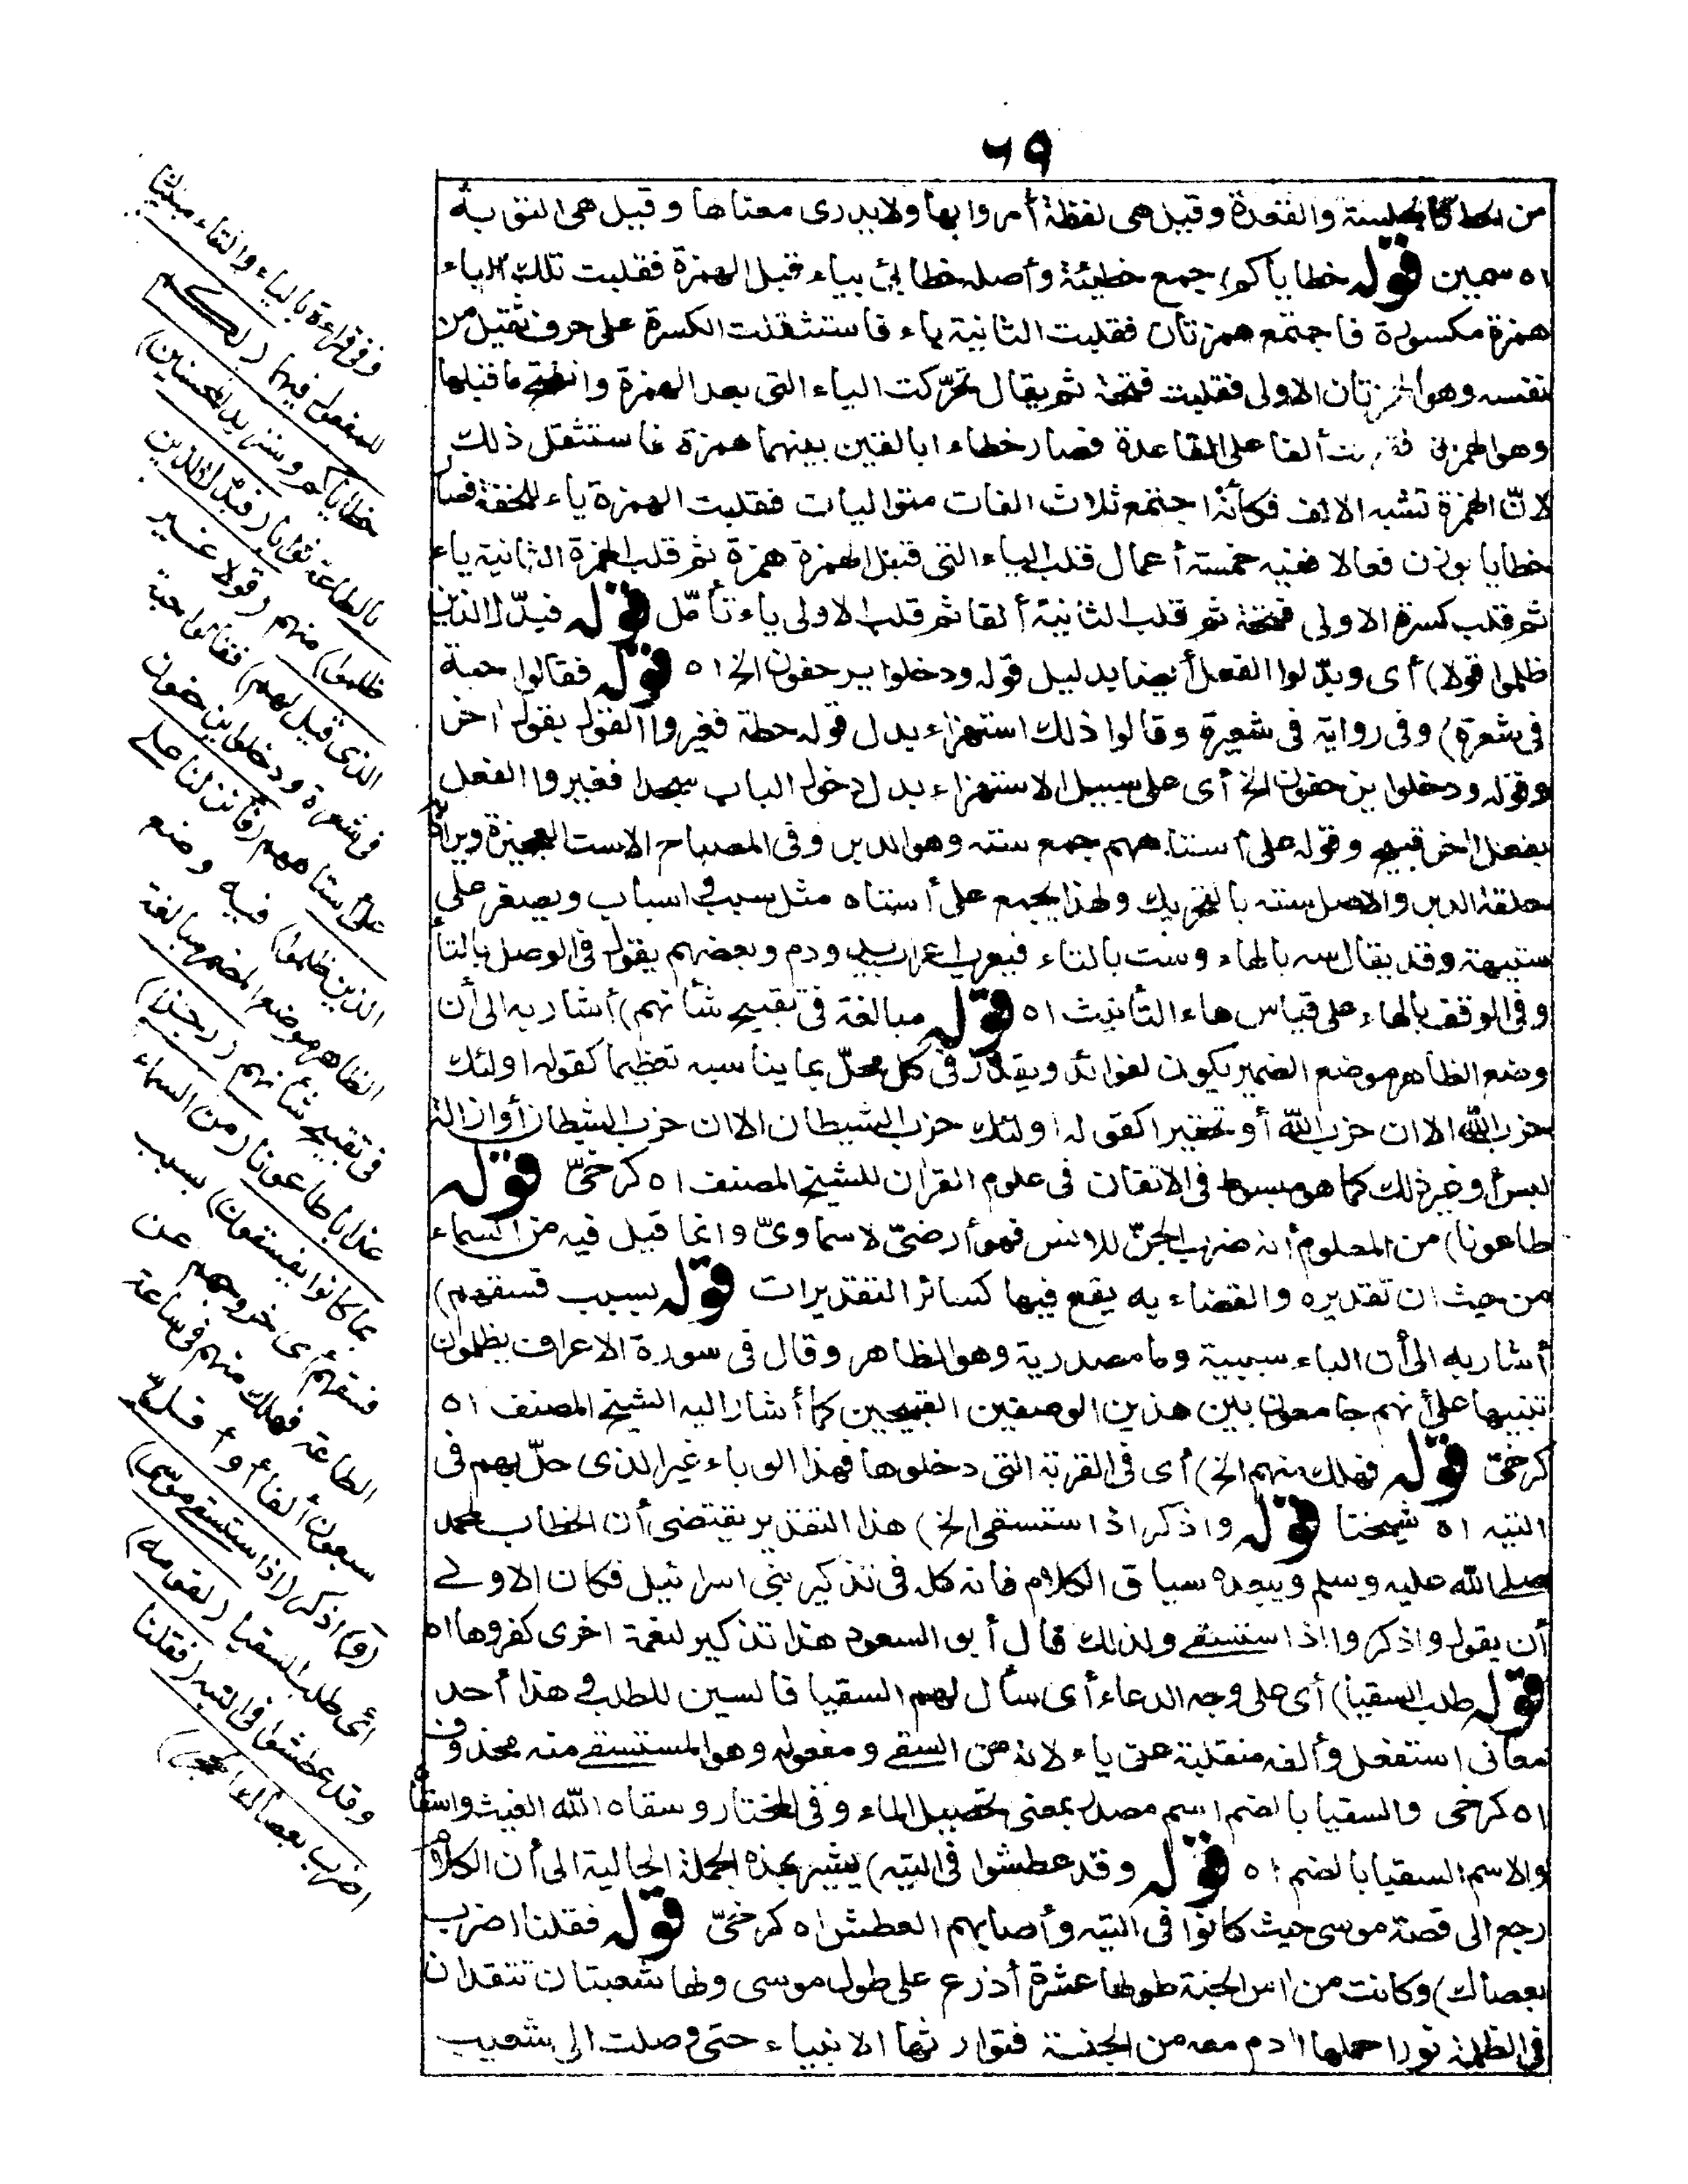 ٦٩
من الحط كالجلسة والقعدة وقيل هى لفظة أمروا بها ولا يدرى معناها وقيل هى التوبة
اه سمين قوله خطاياكم) جمع خطيئة وأصله خطايئ بياء قبل الهمزة فقلبت تلك الياء
همزة مكسورة فاجتمع همزتان فقلبت الثانية ياء فاستثقلت الكسرة على حرف ثقيل من
نفسه وهو الهمزتان الاولى فقلبت فتحة ثم يقال تحرّكت الياء التى بعد الهمزة وانفتح ما قبلها
وهو الهمزة فقلبت ألفا على القاعدة فصار خطاءا بالفين بينهما همزة فاستثقل ذلك
لانّ الهمزة تشبه الالف فكأنه اجتمع ثلاث الفات متواليات فقلبت الهمزة ياء للخفة فصار
خطايا بوزن فعالا ففيه خمسة أعمال قلب الياء التى قبل الهمزة همزة ثم قلب الهمزة الثانية ياء
ثم قلب كسرة الاولى فتحة ثم قلب الثانية ألفا ثم قلب الاولى ياء تأمّل قوله فبدّل الذين
ظلموا قولا) أى وبدّلوا الفعل أيضا بدليل قوله ودخلوا يزحفون الخ اه قوله فقالوا حبة
فى شعرة) وفى رواية فى شعيرة وقالوا ذلك استهزاء بدل قوله حطة فغيروا القول بقول اخر
وقوله ودخلوا يزحفون الخ أى على سبيل الاستهزاء بدل دخول الباب سجدا فغيروا الفعل
بفعل اخر قبيح وقوله على أستاههم جمع سته وهو الدبر وفى المصباح الاست العجيزة ويراد به
حلقة الدبر والاصل سته بالتحريك ولهذا يجمع على أستاه مثل سبب واسباب ويصغر على
ستيهة وقد يقال سه بالهاء وست بالتاء فيعرب اعراب يد ودم وبعضهم يقول فى الوصل بالتاء
وفى الوقف بالهاء على قياس هاء التأنيث اه قوله مبالغة فى تقبيح شأنهم) أشار به الى أن
وضع الظاهر موضع الضمير يكون لفوائد ويقدّر فى كل محلّ بما يناسبه تعظيما كقوله اولئك
حزب الله الا ان حزب الله أو تحقيرا كقوله اولئك حزب الشيطان الا ان حزب الشيطان أو ازالة
لبس أو غير ذلك كما هو مبسوط فى الاتقان فى علوم القران للشيخ المصنف اه كرخىّ قوله
طاعونا) من المعلوم أنه ضرب الجنّ للانس فهو أرضىّ لا سماوىّ وانما قيل فيه من السماء
من حيث ان تقديره والقضاء به يقع فيها كسائر التقديرات قوله بسبب فسقهم)
أشار به الى أن الباء سببية وما مصدرية وهو الظاهر وقال فى سورة الاعراف يظلمون
تنبيها على أنهم جامعون بين هذين الوصفين القبيحين كما أشار اليه الشيخ المصنف اه
كرخىّ قوله فهلك منهم الخ) أى فى القرية التى دخلوها فهذا الوباء غير الذى حلّ بهم فى
التيه اه شيخنا قوله واذكر اذ استسقى الخ) هذا التقدير يقتضى أن الخطاب لمحمد
صلى الله عليه وسلم ويبعده سياق الكلام فانه كله فى تذكير بنى اسرائيل فكان الاولى
أن يقول واذكروا اذ استسقى ولذلك قال أبو السعود هذا تذكير لنعمة اخرى كفروها اه
قوله طلب السقيا) أى على وجه الدعاء أى سأل لهم السقيا فالسين للطلب وهذا أحد
معانى استفعل وألفه منقلبة عن ياء لانه من السقى ومفعوله وهو المستسقى منه محذوف
اه كرخى والسقيا بالضم اسم مصدر بمعنى تحصيل الماء وفى المختار وسقاه الله الغيث وأسقاه
والاسم السقيا بالضم اه قوله وقد عطشوا فى التيه) يشير بهذه الجملة الحالية الى أن الكلام
رجع الى قصة موسى حيث كانوا فى التيه وأصابهم العطش اه كرخىّ قوله فقلنا اضرب
بعصاك) وكانت من اس الجنة طولها عشرة أذرع على طول موسى ولها شعبتان تتقدان
فى الظلمة نورا حملها ادم معه من الجنة فتوارثها الانبياء حتى وصلت الى شعيب
وفى قراءة بالياء والتاء مبنيا
للمفعول فيهما (لكم
خطاياكم وسنزيد المحسنين)
بالطاعة ثوابا (فبدّل الذين
ظلموا) منهم (قولا غير
الذى قيل لهم) فقالوا حبة
فى شعرة ودخلوا يزحفون
على أستاههم (فأنزلنا على
الذين ظلموا) فيه وضع
الظاهر موضع المضمر مبالغة
فى تقبيح شأنهم (رجزا)
عذابا طاعونا (من السماء
بما كانوا يفسقون) بسبب
فسقهم أى خروجهم عن
الطاعة فهلك منهم فى ساعة
سبعون ألفا أو أقل
(و) اذكر (اذ استسقى موسى)
أى طلب السقيا (لقومه)
وقد عطشوا فى التيه (فقلنا
اضرب بعصاك الحجر)